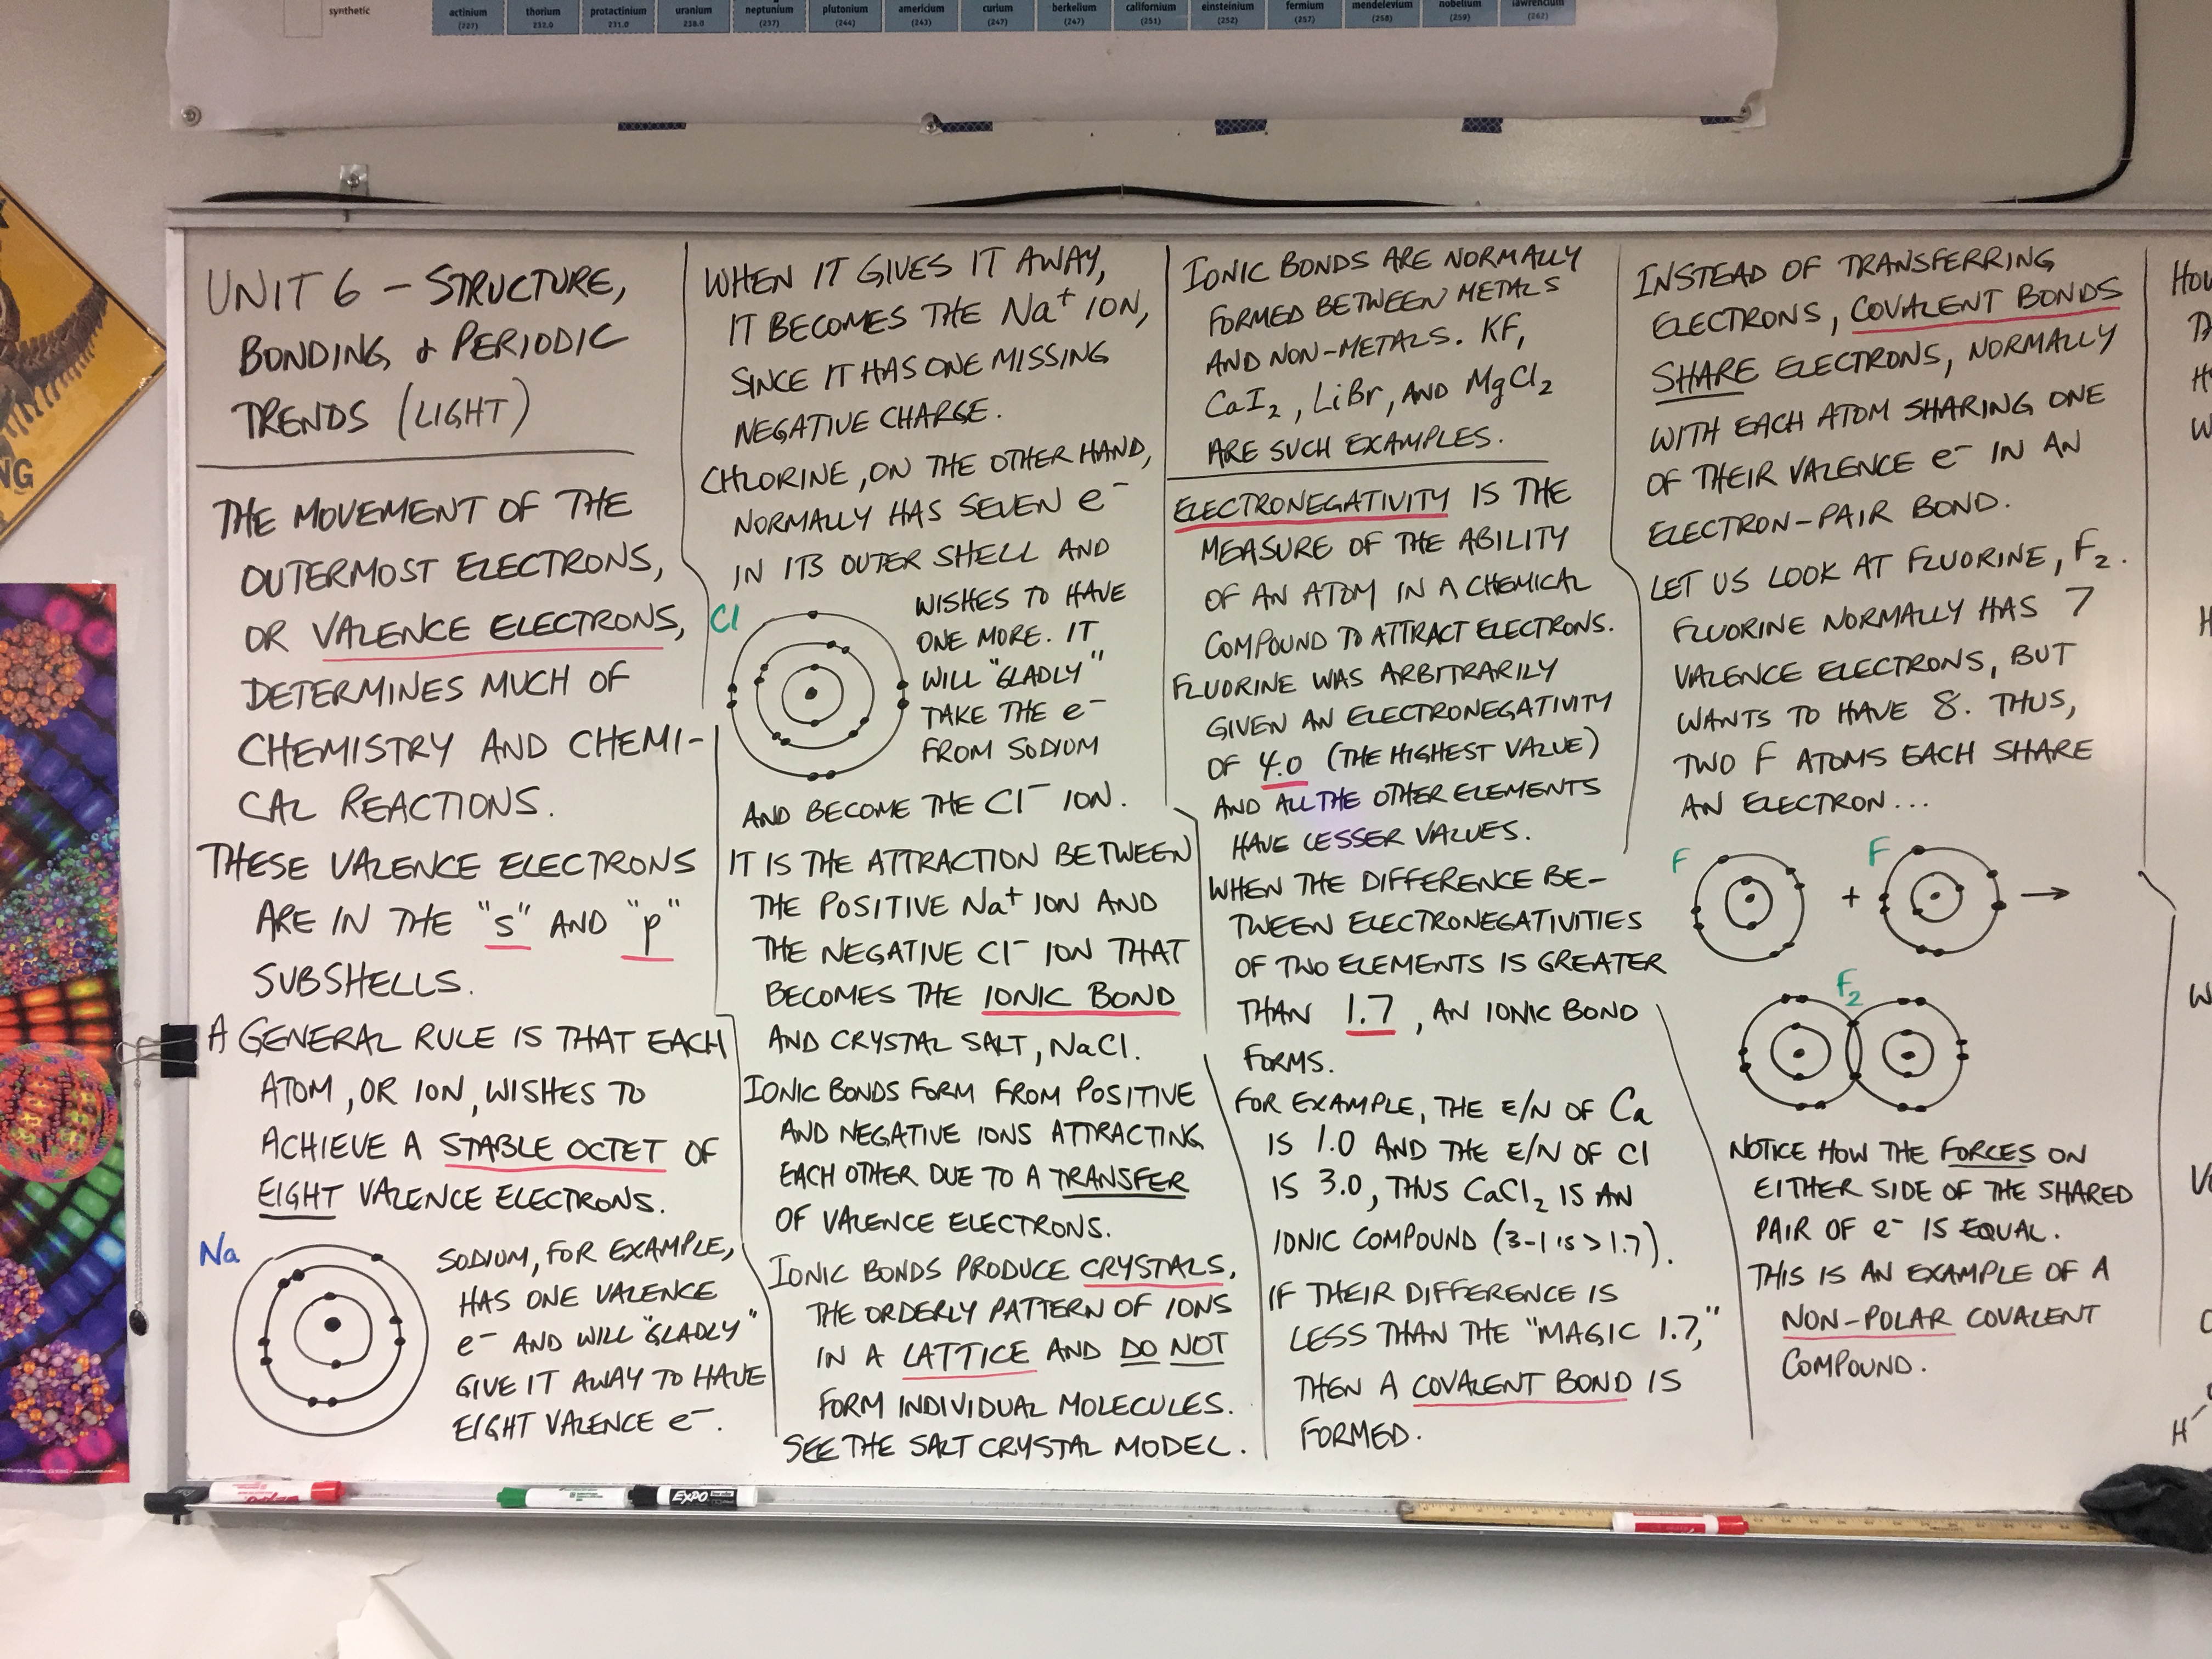 synthetic
actinium
(227)
thorium
232.0
protactinium
231.0
uranium
238.0
neptunium
(237)
plutonium
(244)
americium
(243)
curium
(247)
berkelium
(247)
californium
(251)
einsteinium
(252)
fermium
(257)
mendelevium
(258)
nobelium
(259)
lawrencium
(262)
NG
UNIT 6 – STRUCTURE,
BONDING, & PERIODIC
TRENDS (LIGHT)
THE MOVEMENT OF THE
OUTERMOST ELECTRONS,
OR VALENCE ELECTRONS,
DETERMINES MUCH OF
CHEMISTRY AND CHEMI-
CAL REACTIONS.
THESE VALENCE ELECTRONS
ARE IN THE "s" AND "p"
SUBSHELLS.
A GENERAL RULE IS THAT EACH
ATOM, OR ION, WISHES TO
ACHIEVE A STABLE OCTET OF
EIGHT VALENCE ELECTRONS.
Na
SODIUM, FOR EXAMPLE,
HAS ONE VALENCE
e⁻ AND WILL "GLADLY"
GIVE IT AWAY TO HAVE
EIGHT VALENCE e⁻.
WHEN IT GIVES IT AWAY,
IT BECOMES THE Na⁺ ION,
SINCE IT HAS ONE MISSING
NEGATIVE CHARGE.
CHLORINE, ON THE OTHER HAND,
NORMALLY HAS SEVEN e⁻
IN ITS OUTER SHELL AND
Cl
WISHES TO HAVE
ONE MORE. IT
WILL "GLADLY"
TAKE THE e⁻
FROM SODIUM
AND BECOME THE Cl⁻ ION.
IT IS THE ATTRACTION BETWEEN
THE POSITIVE Na⁺ ION AND
THE NEGATIVE Cl⁻ ION THAT
BECOMES THE IONIC BOND
AND CRYSTAL SALT, NaCl.
IONIC BONDS FORM FROM POSITIVE
AND NEGATIVE IONS ATTRACTING
EACH OTHER DUE TO A TRANSFER
OF VALENCE ELECTRONS.
IONIC BONDS PRODUCE CRYSTALS,
THE ORDERLY PATTERN OF IONS
IN A LATTICE AND DO NOT
FORM INDIVIDUAL MOLECULES.
SEE THE SALT CRYSTAL MODEL.
IONIC BONDS ARE NORMALLY
FORMED BETWEEN METALS
AND NON-METALS. KF,
CaI₂, LiBr, AND MgCl₂
ARE SUCH EXAMPLES.
ELECTRONEGATIVITY IS THE
MEASURE OF THE ABILITY
OF AN ATOM IN A CHEMICAL
COMPOUND TO ATTRACT ELECTRONS.
FLUORINE WAS ARBITRARILY
GIVEN AN ELECTRONEGATIVITY
OF 4.0 (THE HIGHEST VALUE)
AND ALL THE OTHER ELEMENTS
HAVE LESSER VALUES.
WHEN THE DIFFERENCE BE-
TWEEN ELECTRONEGATIVITIES
OF TWO ELEMENTS IS GREATER
THAN 1.7, AN IONIC BOND
FORMS.
FOR EXAMPLE, THE E/N OF Ca
IS 1.0 AND THE E/N OF Cl
IS 3.0, THUS CaCl₂ IS AN
IONIC COMPOUND (3-1 IS > 1.7).
IF THEIR DIFFERENCE IS
LESS THAN THE "MAGIC 1.7,"
THEN A COVALENT BOND IS
FORMED.
INSTEAD OF TRANSFERRING
ELECTRONS, COVALENT BONDS
SHARE ELECTRONS, NORMALLY
WITH EACH ATOM SHARING ONE
OF THEIR VALENCE e⁻ IN AN
ELECTRON-PAIR BOND.
LET US LOOK AT FLUORINE, F₂.
FLUORINE NORMALLY HAS 7
VALENCE ELECTRONS, BUT
WANTS TO HAVE 8. THUS,
TWO F ATOMS EACH SHARE
AN ELECTRON...
F + F →
F₂
NOTICE HOW THE FORCES ON
EITHER SIDE OF THE SHARED
PAIR OF e⁻ IS EQUAL.
THIS IS AN EXAMPLE OF A
NON-POLAR COVALENT
COMPOUND.
H
EXPO
EXPO